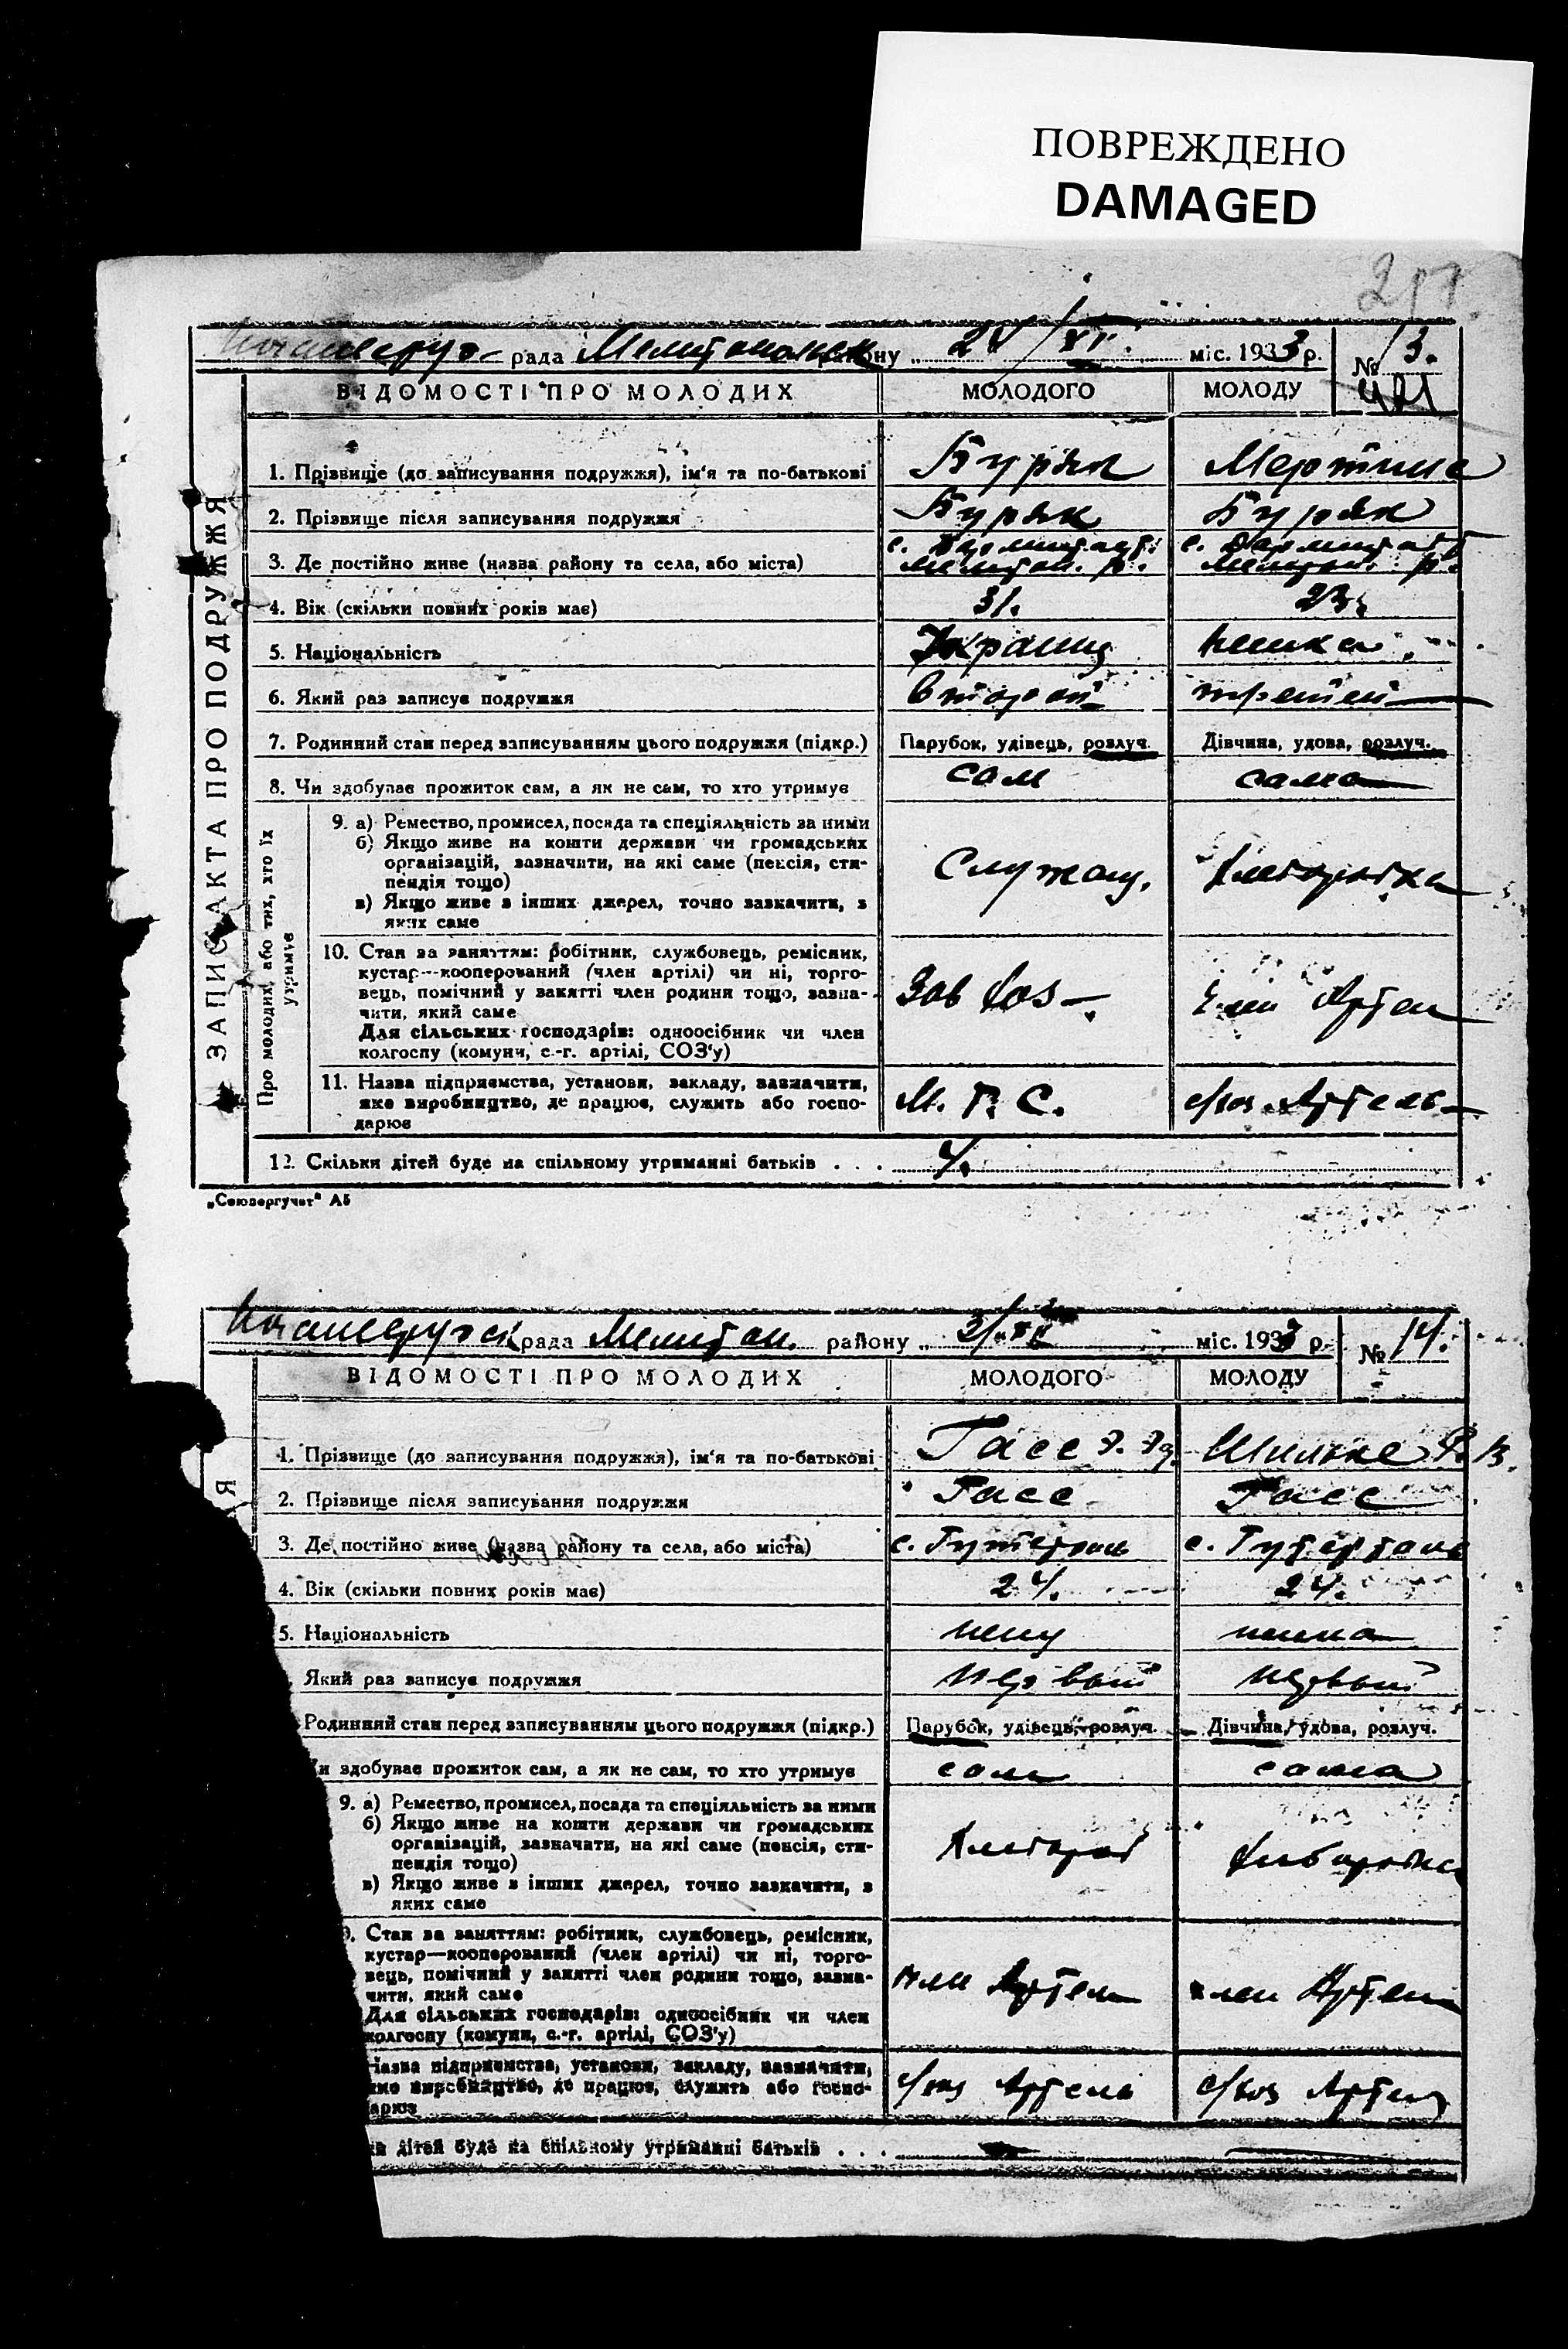 ПОВРЕЖДЕНО
DAMAGED
рада Мелитопольск району „ /XI. міс. 1933 р. № 13.
ВІДОМОСТІ ПРО МОЛОДИХ МОЛОДОГО МОЛОДУ
ЗАПИС АКТА ПРО ПОДРУЖЖЯ
1. Прізвище (до записування подружжя), ім'я та по-батькові Буряк Мертинс
2. Прізвище після записування подружжя Буряк Буряк
3. Де постійно живе (назва району та села, або міста) с. Дармштадт. Мелитоп. р. с. Дармштадт Мелитоп. р.
4. Вік (скільки повних років має) 31. 23.
5. Національність Украинц немка
6. Який раз записує подружжя второй третий
7. Родинний стан перед записуванням цього подружжя (підкр.) Парубок, удівець, розлуч. Дівчина, удова, розлуч.
8. Чи здобуває прожиток сам, а як не сам, то хто утримує сам сама
Про молодих, або тих, хто їх утримує
9. а) Ремество, промисел, посада та спеціяльність за ними
б) Якщо живе на кошти держави чи громадських
організацій, зазначити, на які саме (пенсія, сти-
пендія тощо)
в) Якщо живе з інших джерел, точно зазначити, з
яких саме
Служащ. Хлеборобка
10. Стан за заняттям: робітник, службовець, ремісник,
кустар—кооперований (член артілі) чи ні, торго-
вець, помічний у занятті член родини тощо, зазна-
чити, який саме
Для сільських господарів: одноосібник чи член
колгоспу (комуни, с.-г. артілі, СОЗ'у)
Зав Хоз член Артели
11. Назва підприємства, установи, закладу, зазначити,
яке виробництво, де працює, служить або госпо-
дарює
М. Т. С. с/хоз. Артель
12. Скільки дітей буде на спільному утриманні батьків . . . 4.
„Союзоргучет" А5
рада Мелитоп. району „ міс. 1933 р. № 14.
ВІДОМОСТІ ПРО МОЛОДИХ МОЛОДОГО МОЛОДУ
Я
1. Прізвище (до записування подружжя), ім'я та по-батькові Гасс Шильке
2. Прізвище після записування подружжя Гасс Гасс
3. Де постійно живе (назва району та села, або міста) с. Гутерталь с. Гутерталь
4. Вік (скільки повних років має) 24. 24.
5. Національність немц немка
Який раз записує подружжя первый первый
Родинний стан перед записуванням цього подружжя (підкр.) Парубок, удівець, розлуч. Дівчина, удова, розлуч.
и здобуває прожиток сам, а як не сам, то хто утримує сам сама
9. а) Ремество, промисел, посада та спеціяльність за ними
б) Якщо живе на кошти держави чи громадських
організацій, зазначити, на які саме (пенсія, сти-
пендія тощо)
в) Якщо живе з інших джерел, точно зазначити, з
яких саме
Хлебороб Хлеборобка
Стан за заняттям: робітник, службовець, ремісник,
кустар—кооперований (член артілі) чи ні, торго-
вець, помічний у занятті член родини тощо, зазна-
чити, який саме
Для сільських господарів: одноосібник чи член
колгоспу (комуни, с.-г. артілі, СОЗ'у)
член Артели член Артели
Назва підприємства, установи, закладу, зазначити,
яке виробництво, де працює, служить або госпо-
дарює
с/хоз Артель с/хоз Артель
дітей буде на спільному утриманні батьків . . .